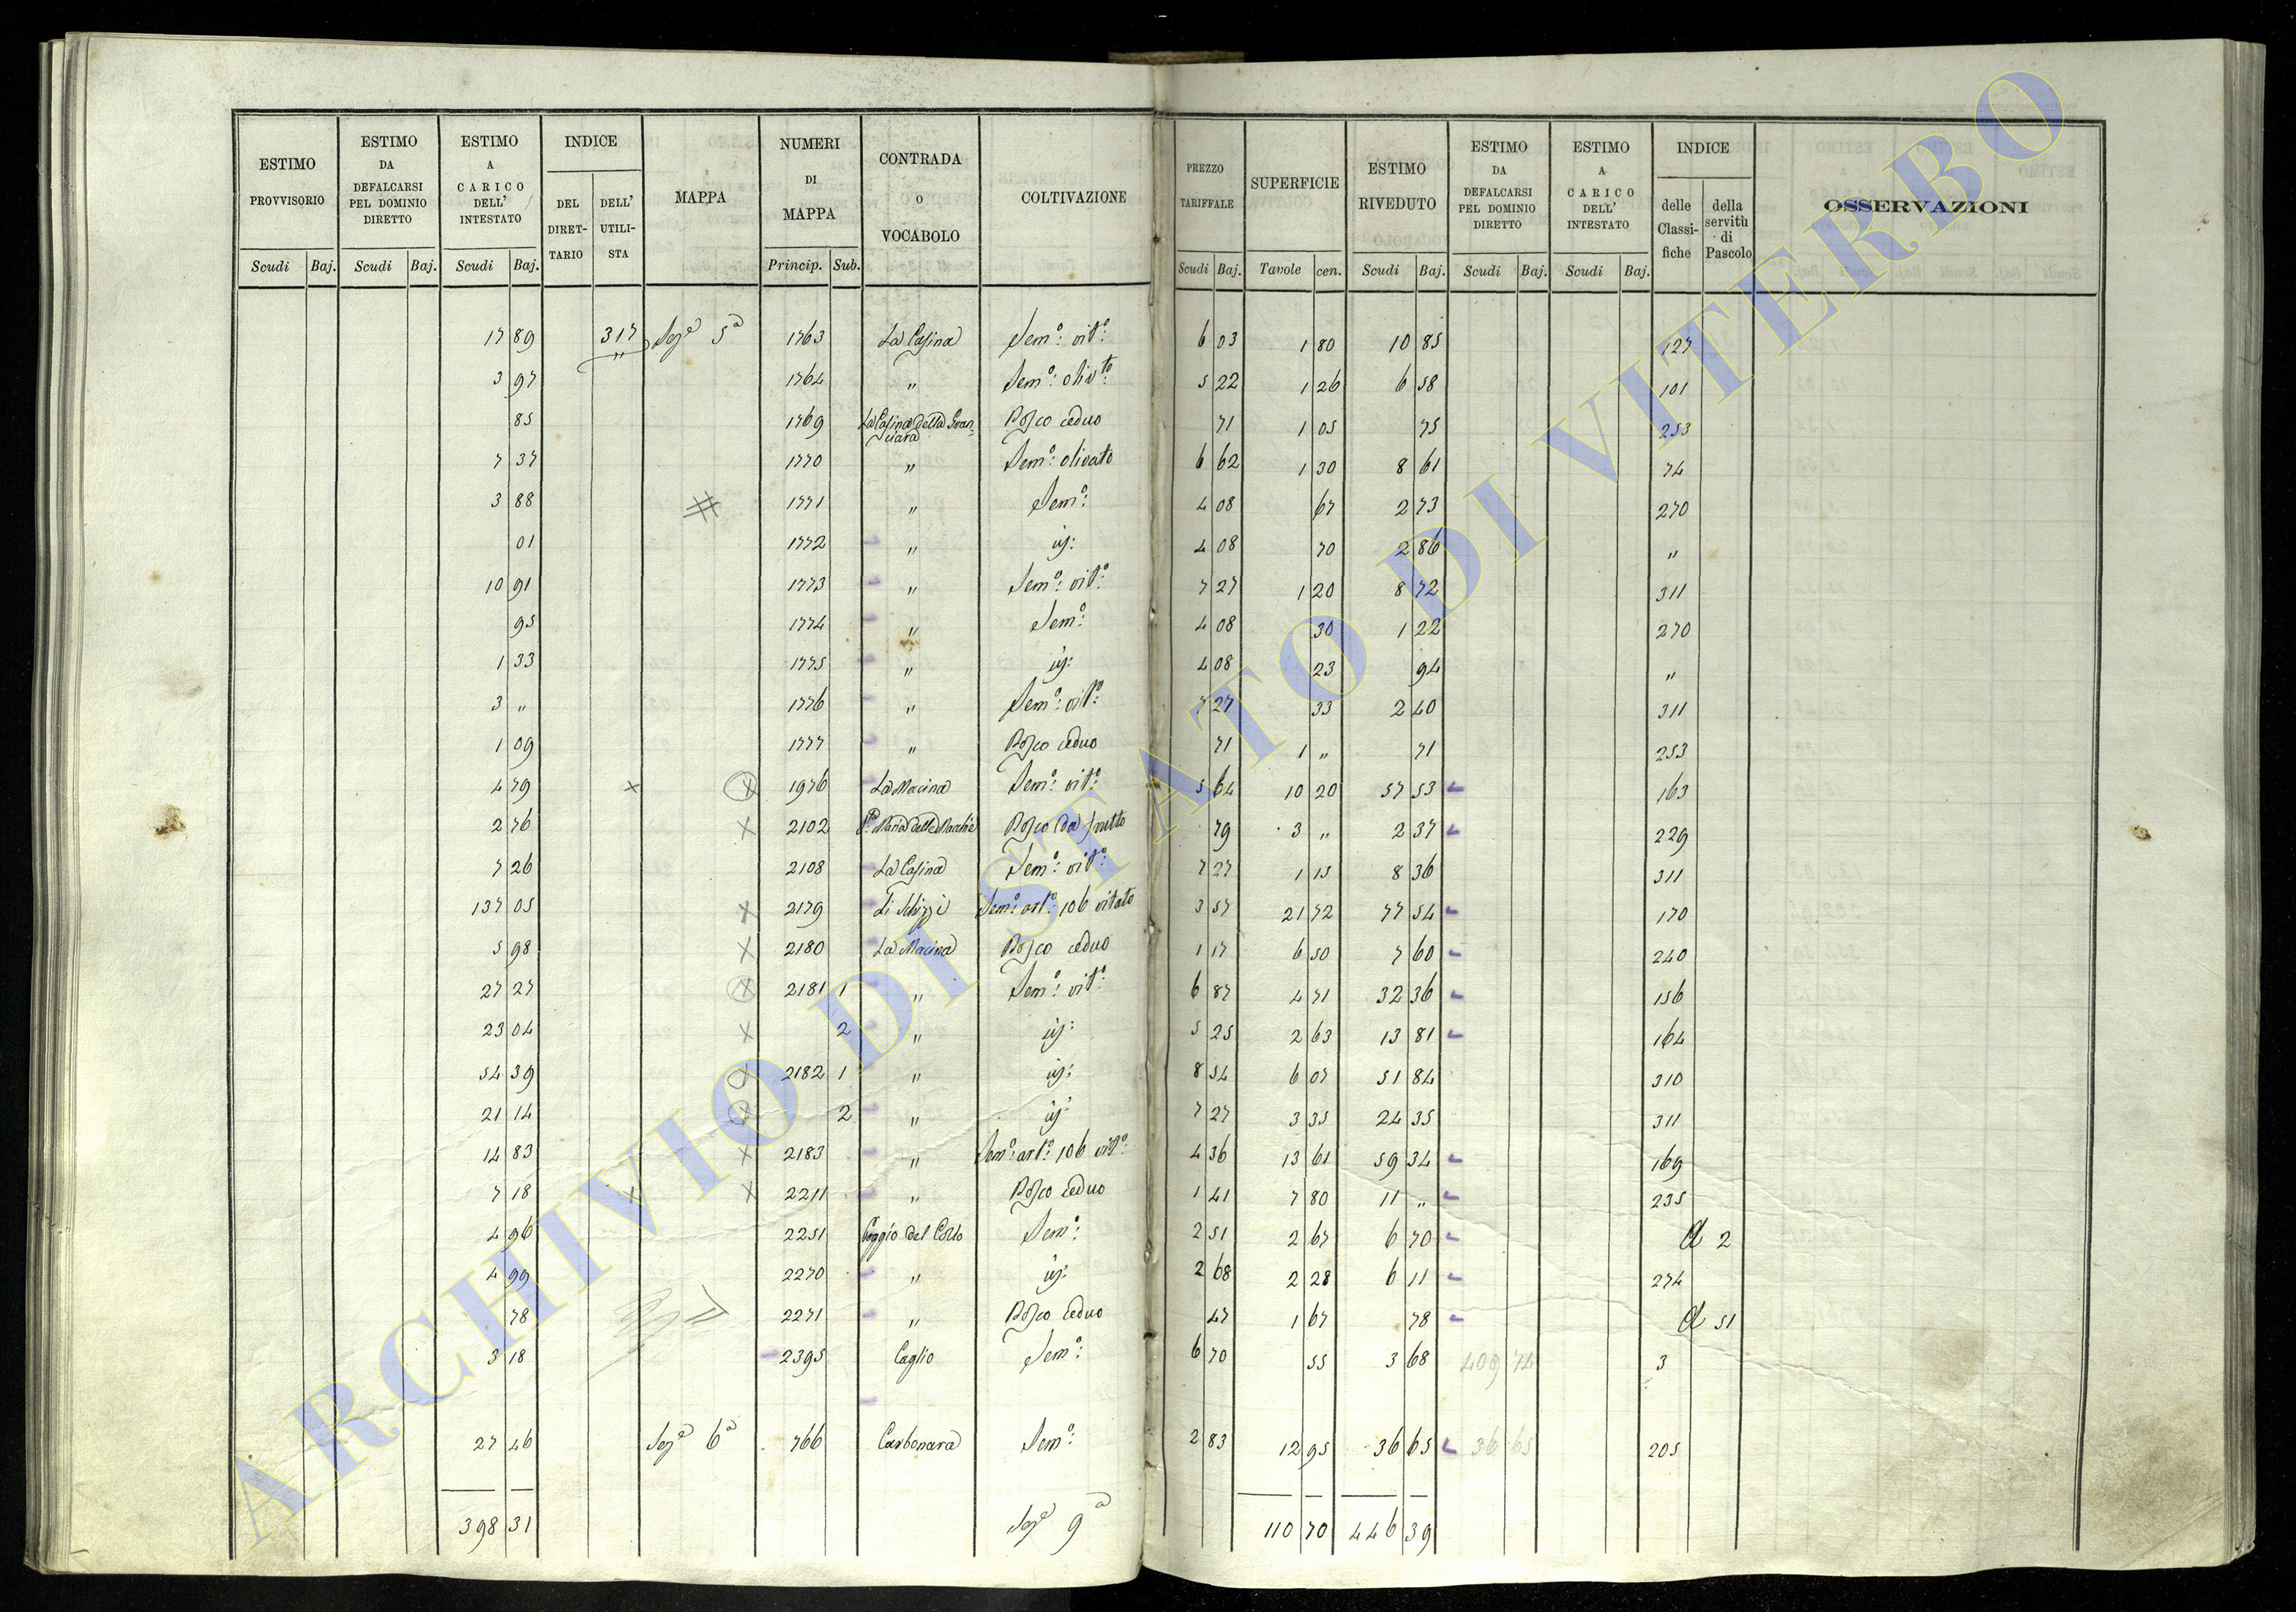 ESTIMO PROVVISORIO | ESTIMO DA DEFALCARSI PEL DOMINIO DIRETTO | ESTIMO A CARICO DELL' INTESTATO | INDICE | MAPPA | NUMERI DI MAPPA | CONTRADA O VOCABOLO | COLTIVAZIONE | PREZZO TARIFFALE | SUPERFICIE | ESTIMO RIVEDUTO | ESTIMO DA DEFALCARSI PEL DOMINIO DIRETTO | ESTIMO A CARICO DELL' INTESTATO | INDICE | OSSERVAZIONI
DEL DIRETTARIO | DELL' UTILISTA | delle Classifiche | della servitù di Pascolo
Scudi | Baj. | Scudi | Baj. | Scudi | Baj. | Princip. | Sub. | Scudi | Baj. | Tavole | cen. | Scudi | Baj. | Scudi | Baj. | Scudi | Baj.
17 89 | 317 | Sezᵉ 5ª | 1763 | La Casina | Semº: vitº: | 6 03 | 1 80 | 10 85 | 127
3 97 | 1764 | " | Semº: olivto: | 5 22 | 1 26 | 6 58 | 101
85 | 1769 | La Casina della Gran-ciara | Bosco ceduo | 71 | 1 05 | 75 | 253
7 37 | 1770 | " | Semº: olivato | 6 62 | 1 30 | 8 61 | 74
3 88 | 1771 | " | Semº: | 4 08 | 67 | 2 73 | 270
01 | 1772 | " | id: | 4 08 | 70 | 2 86 | "
10 91 | 1773 | " | Semº: vitº: | 7 27 | 1 20 | 8 72 | 311
95 | 1774 | " | Semº: | 4 08 | 30 | 1 22 | 270
1 33 | 1775 | " | id: | 4 08 | 23 | 94 | "
3 " | 1776 | " | Semº: vitº: | 7 27 | 33 | 2 40 | 311
1 09 | 1777 | " | Bosco ceduo | 71 | 1 " | 71 | 253
4 79 | × | × | 1976 | La Macina | Semº: vitº: | 5 64 | 10 20 | 57 53 | 163
2 76 | × | 2102 | Sª Maria delle Macchie | Bosco da frutto | 79 | 3 " | 2 37 | 229
7 26 | 2108 | La Casina | Semº: vitº: | 7 27 | 1 15 | 8 36 | 311
137 05 | × | 2179 | Li Schizzi | Semº: artº: 106 vitato | 3 57 | 21 72 | 77 54 | 170
5 98 | × | 2180 | La Macina | Bosco ceduo | 1 17 | 6 50 | 7 60 | 240
27 27 | × | 2181 1 | " | Semº: vitº: | 6 87 | 4 71 | 32 36 | 156
23 04 | × | 2 | " | id: | 5 25 | 2 63 | 13 81 | 164
54 39 | × | 2182 1 | " | id: | 8 54 | 6 07 | 51 84 | 310
21 14 | × | 2 | " | id: | 7 27 | 3 35 | 24 35 | 311
14 83 | × | 2183 | " | Semº: artº: 106 vitº: | 4 36 | 13 61 | 59 34 | 169
7 18 | × | × | 2211 | " | Bosco ceduo | 1 41 | 7 80 | 11 " | 235
4 96 | 2251 | Poggio del Corto | Semº: | 2 51 | 2 67 | 6 70 | a 2
4 99 | 2270 | " | id: | 2 68 | 2 28 | 6 11 | 274
78 | 2271 | " | Bosco ceduo | 47 | 1 67 | 78 | a 51
3 18 | 2395 | Caglio | Semº: | 6 70 | 55 | 3 68 | 409 74 | 3
27 46 | Sezᵉ 6ª | 766 | Carbonara | Semº: | 2 83 | 12 95 | 36 65 | 36 65 | 205
398 31 | Sezᵉ 9ª | 110 70 | 446 39
ARCHIVIO DI STATO DI VITERBO